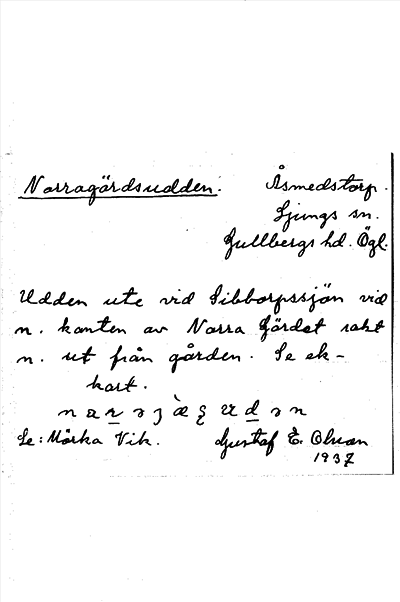 Norragärdsudden. Åsmedstorp.
Ljungs sn.
Gullbergs hd. Ögl.
Udden ute vid Sibborpssjön vid
n. kanten av Norra Gärdet rakt
n. ut från gården. Se ek-
kart.
Se: Mörka Vik. Gustaf E. Olson
1937